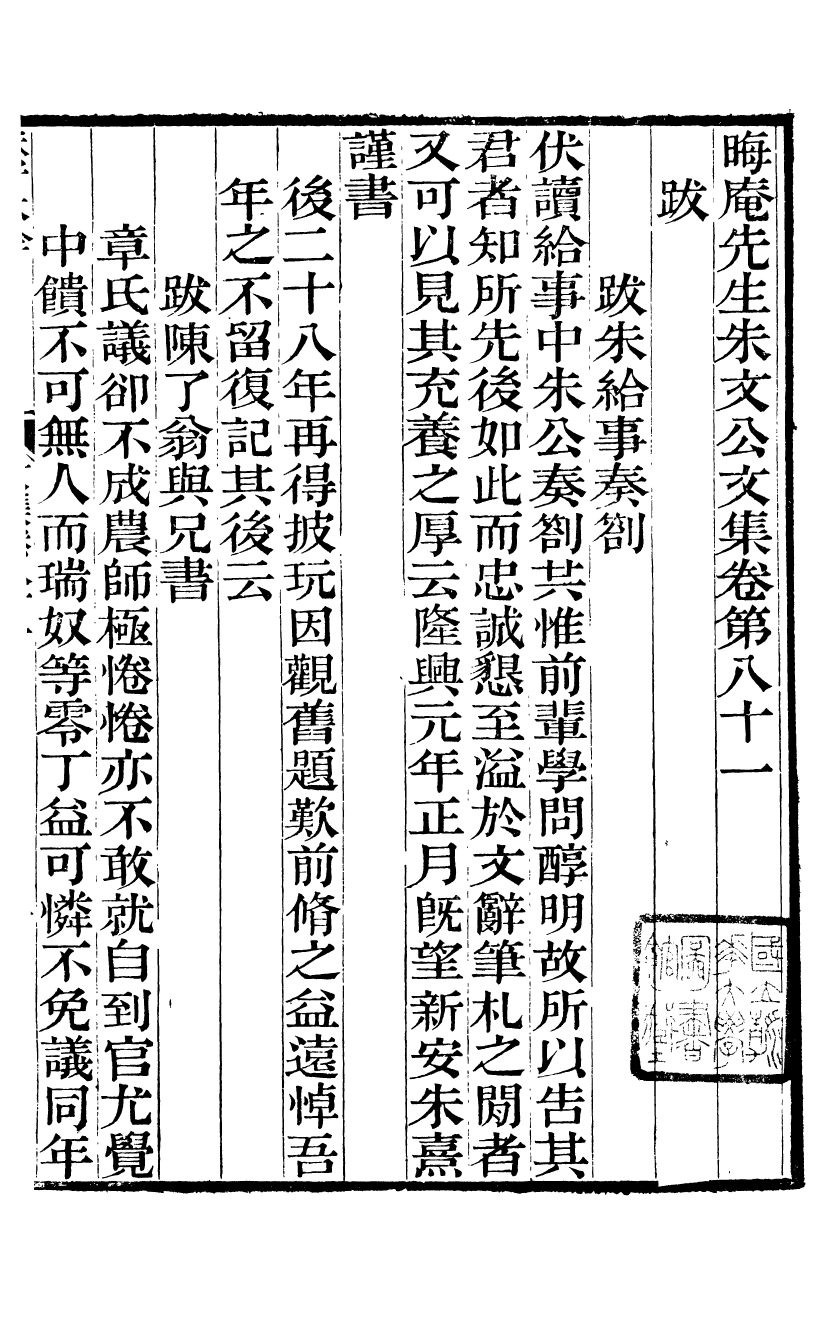 晦庵先生朱文公文集卷第八十一
跋
跋朱給事奏劄
伏讀給事中朱公奏劄共惟前輩學問醇明故所以告其
君者知所先後如此而忠誠懇至溢於文辭筆札之閒者
又可以見其充養之厚云隆興元年正月旣望新安朱熹
謹書
後二十八年再得披玩因觀舊題歎前脩之益遠悼吾
年之不留復記其後云
跋陳了翁與兄書
章氏議卻不成農師極惓惓亦不敢就自到官尤覺
中饋不可無人而瑞奴等零丁益可憐不免議同年